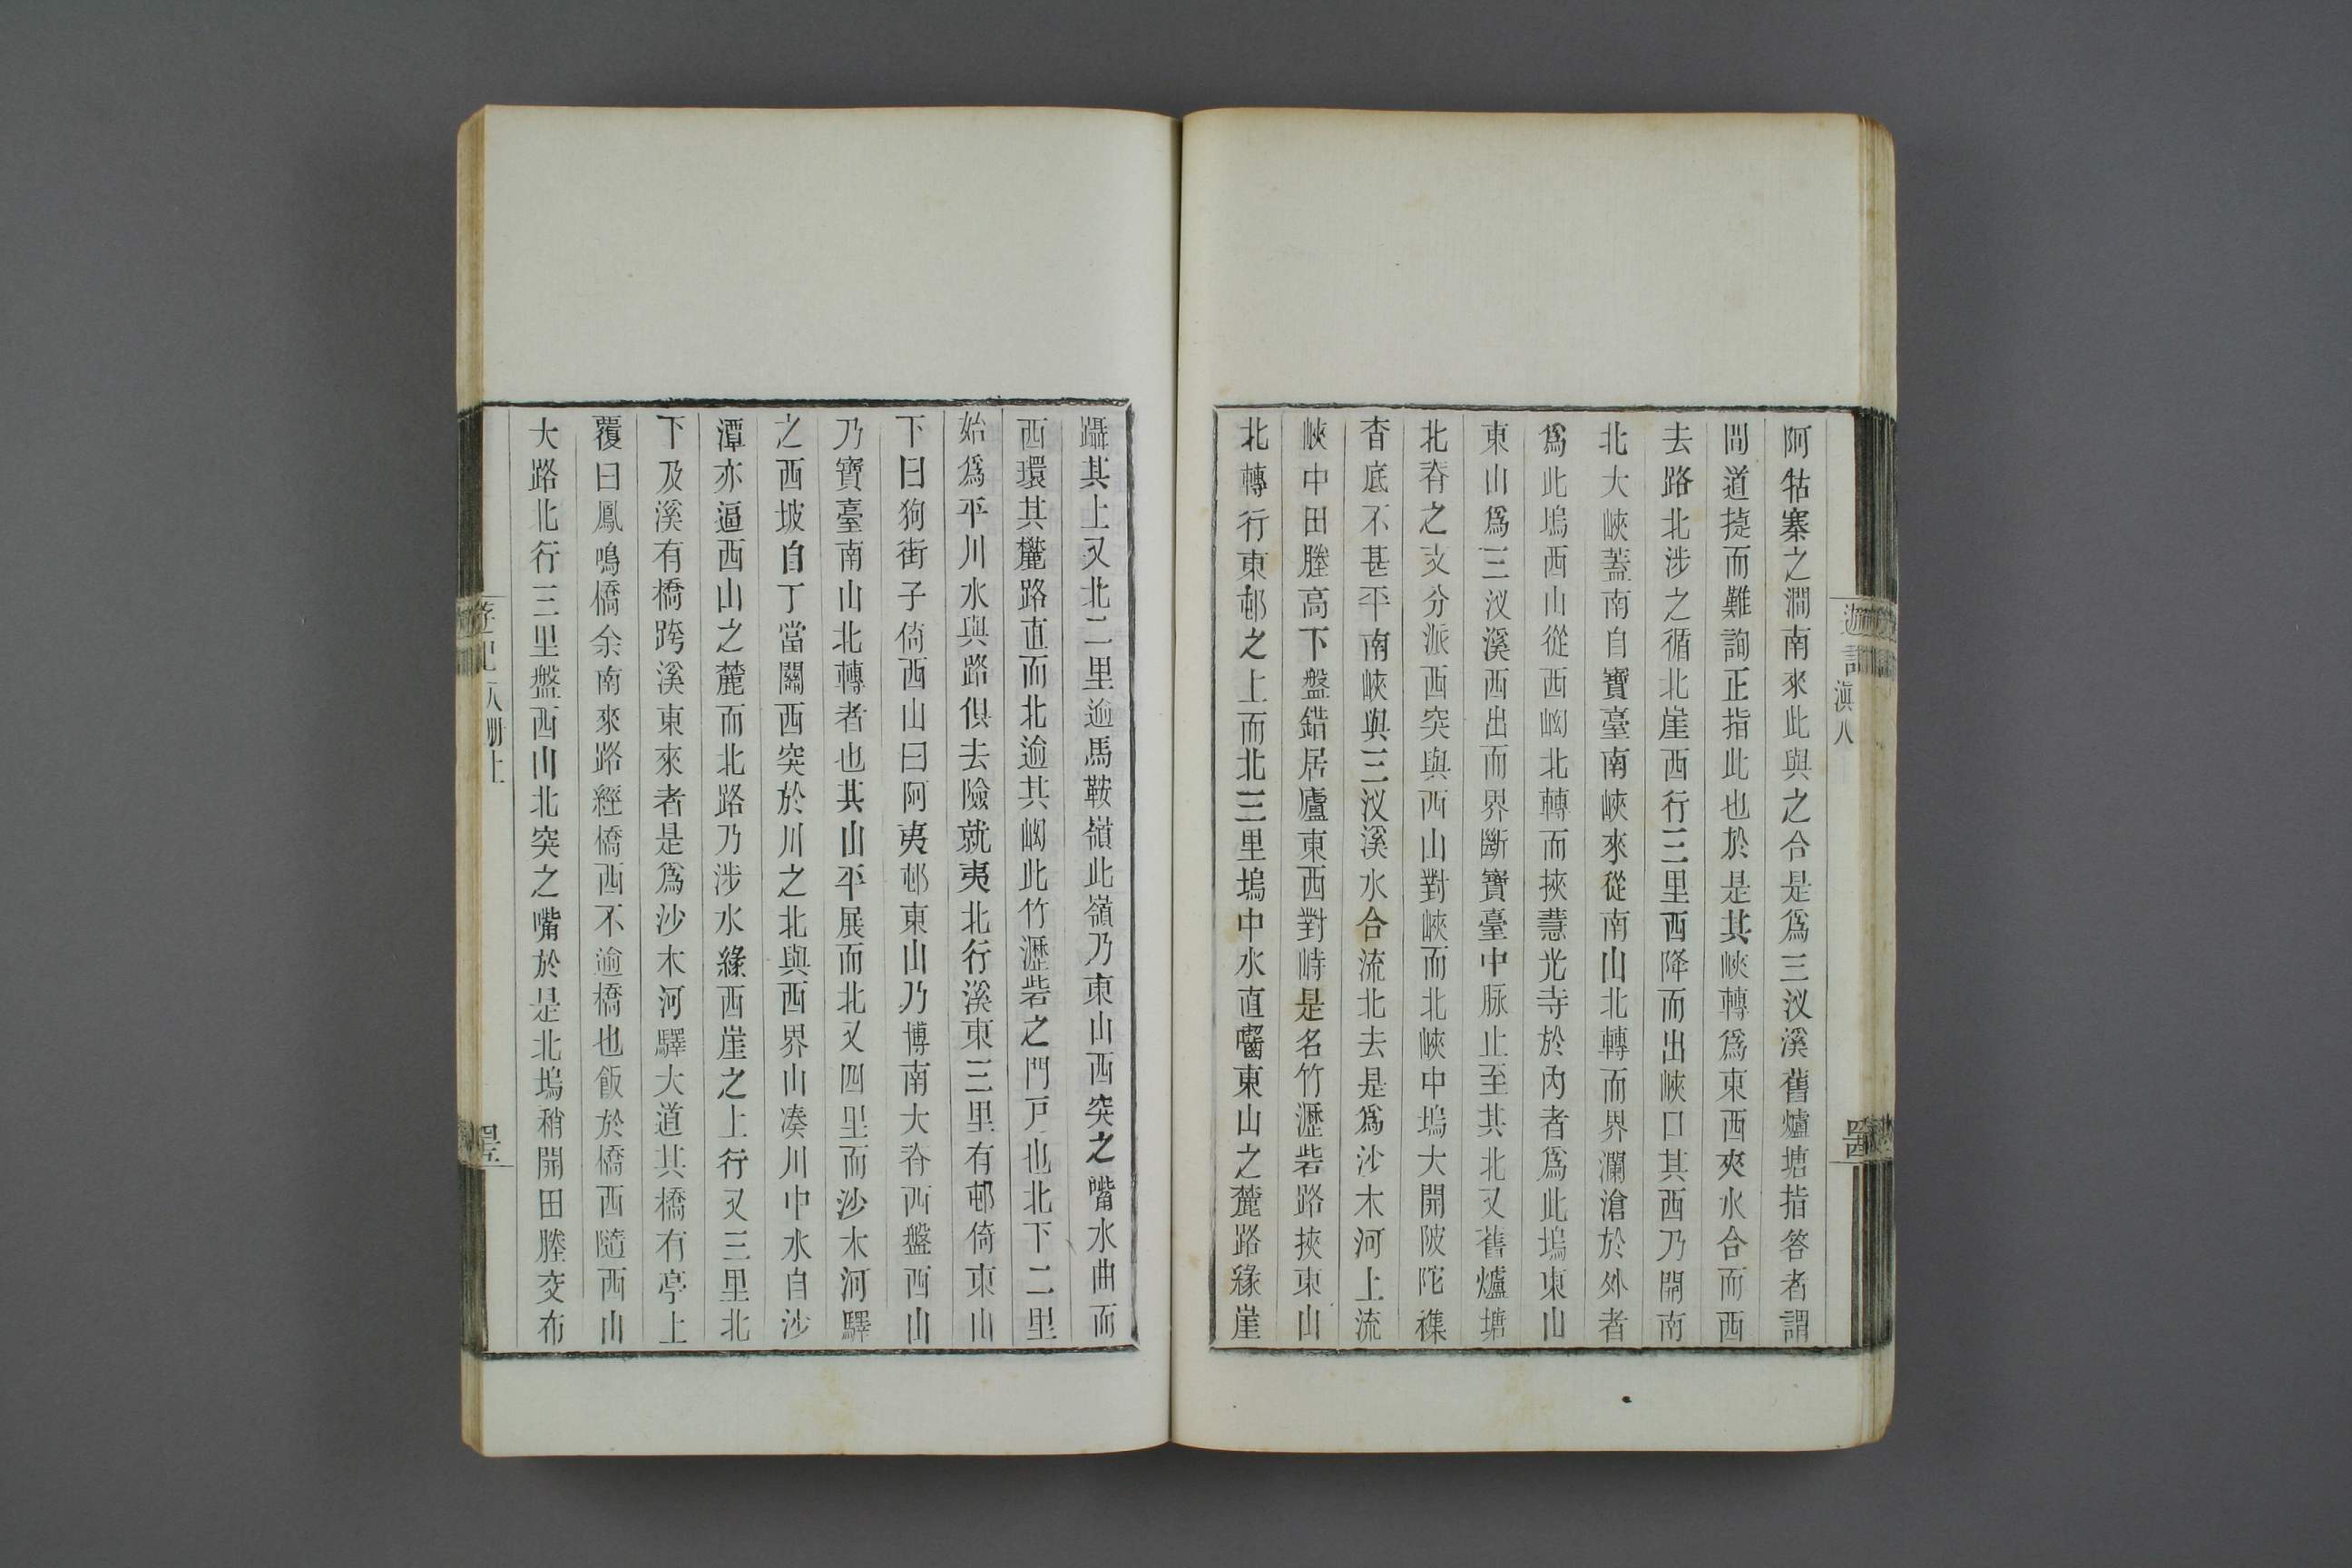 阿牯寨之澗南來此與之合是爲三汊溪舊爐塘指答者謂
間道㨗而難詢正指此也於是其峽轉爲東西夾水合而西
去路北涉之循北崖西行三里西降而出峽口其西乃開南
北大峽蓋南自寶臺南峽來從南山北轉而界瀾滄於外者
爲此塢西山從西峫北轉而挾慧光寺於內者爲此塢東山
東山爲三汊溪西出而界斷寶臺中脉止至其北又舊爐塘
北脊之支分派西突與西山對峽而北峽中塢大開陂陀襍
沓底不甚平南峽與三汊溪水合流北去是爲沙木河上流
峽中田塍高下盤錯居廬東西對峙是名竹瀝砦路挾東山
北轉行東邨之上而北三里塢中水直嚙東山之麓路緣崖
躡其上又北二里逾馬鞍嶺此嶺乃東山西突之嘴水曲而
西環其麓路直而北逾其坳此竹瀝砦之門戸也北下二里
始爲平川水與路俱去險就夷北行溪東三里有邨倚東山
下曰狗街子倚西山曰阿夷邨東山乃博南大脊西盤西山
乃寶臺南山北轉者也其山平展而北又四里而沙木河驛
之西坡自丁當關西突於川之北與西界山湊川中水自沙
潭亦逼西山之麓而北路乃涉水緣西崖之上行又三里北
下及溪有橋跨溪東來者是爲沙木河驛大道其橋有亭上
覆曰鳳鳴橋余南來路經橋西不逾橋也飯於橋西隨西山
大路北行三里盤西山北突之嘴於是北塢稍開田塍交布
遊記
滇八
八册上